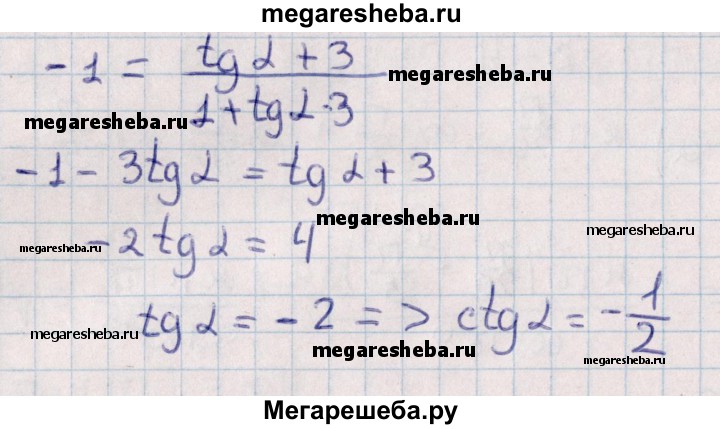 megaresheba.ru
-1 = (tg α + 3) / (1 + tg α · 3) megaresheba.ru
megaresheba.ru
-1 - 3tg α = tg α + 3
megaresheba.ru
megaresheba.ru - 2 tg α = 4 megaresheba.ru
tg α = - 2 => ctg α = - 1/2
megaresheba.ru megaresheba.ru megaresheba.ru
Мегарешеба.ру